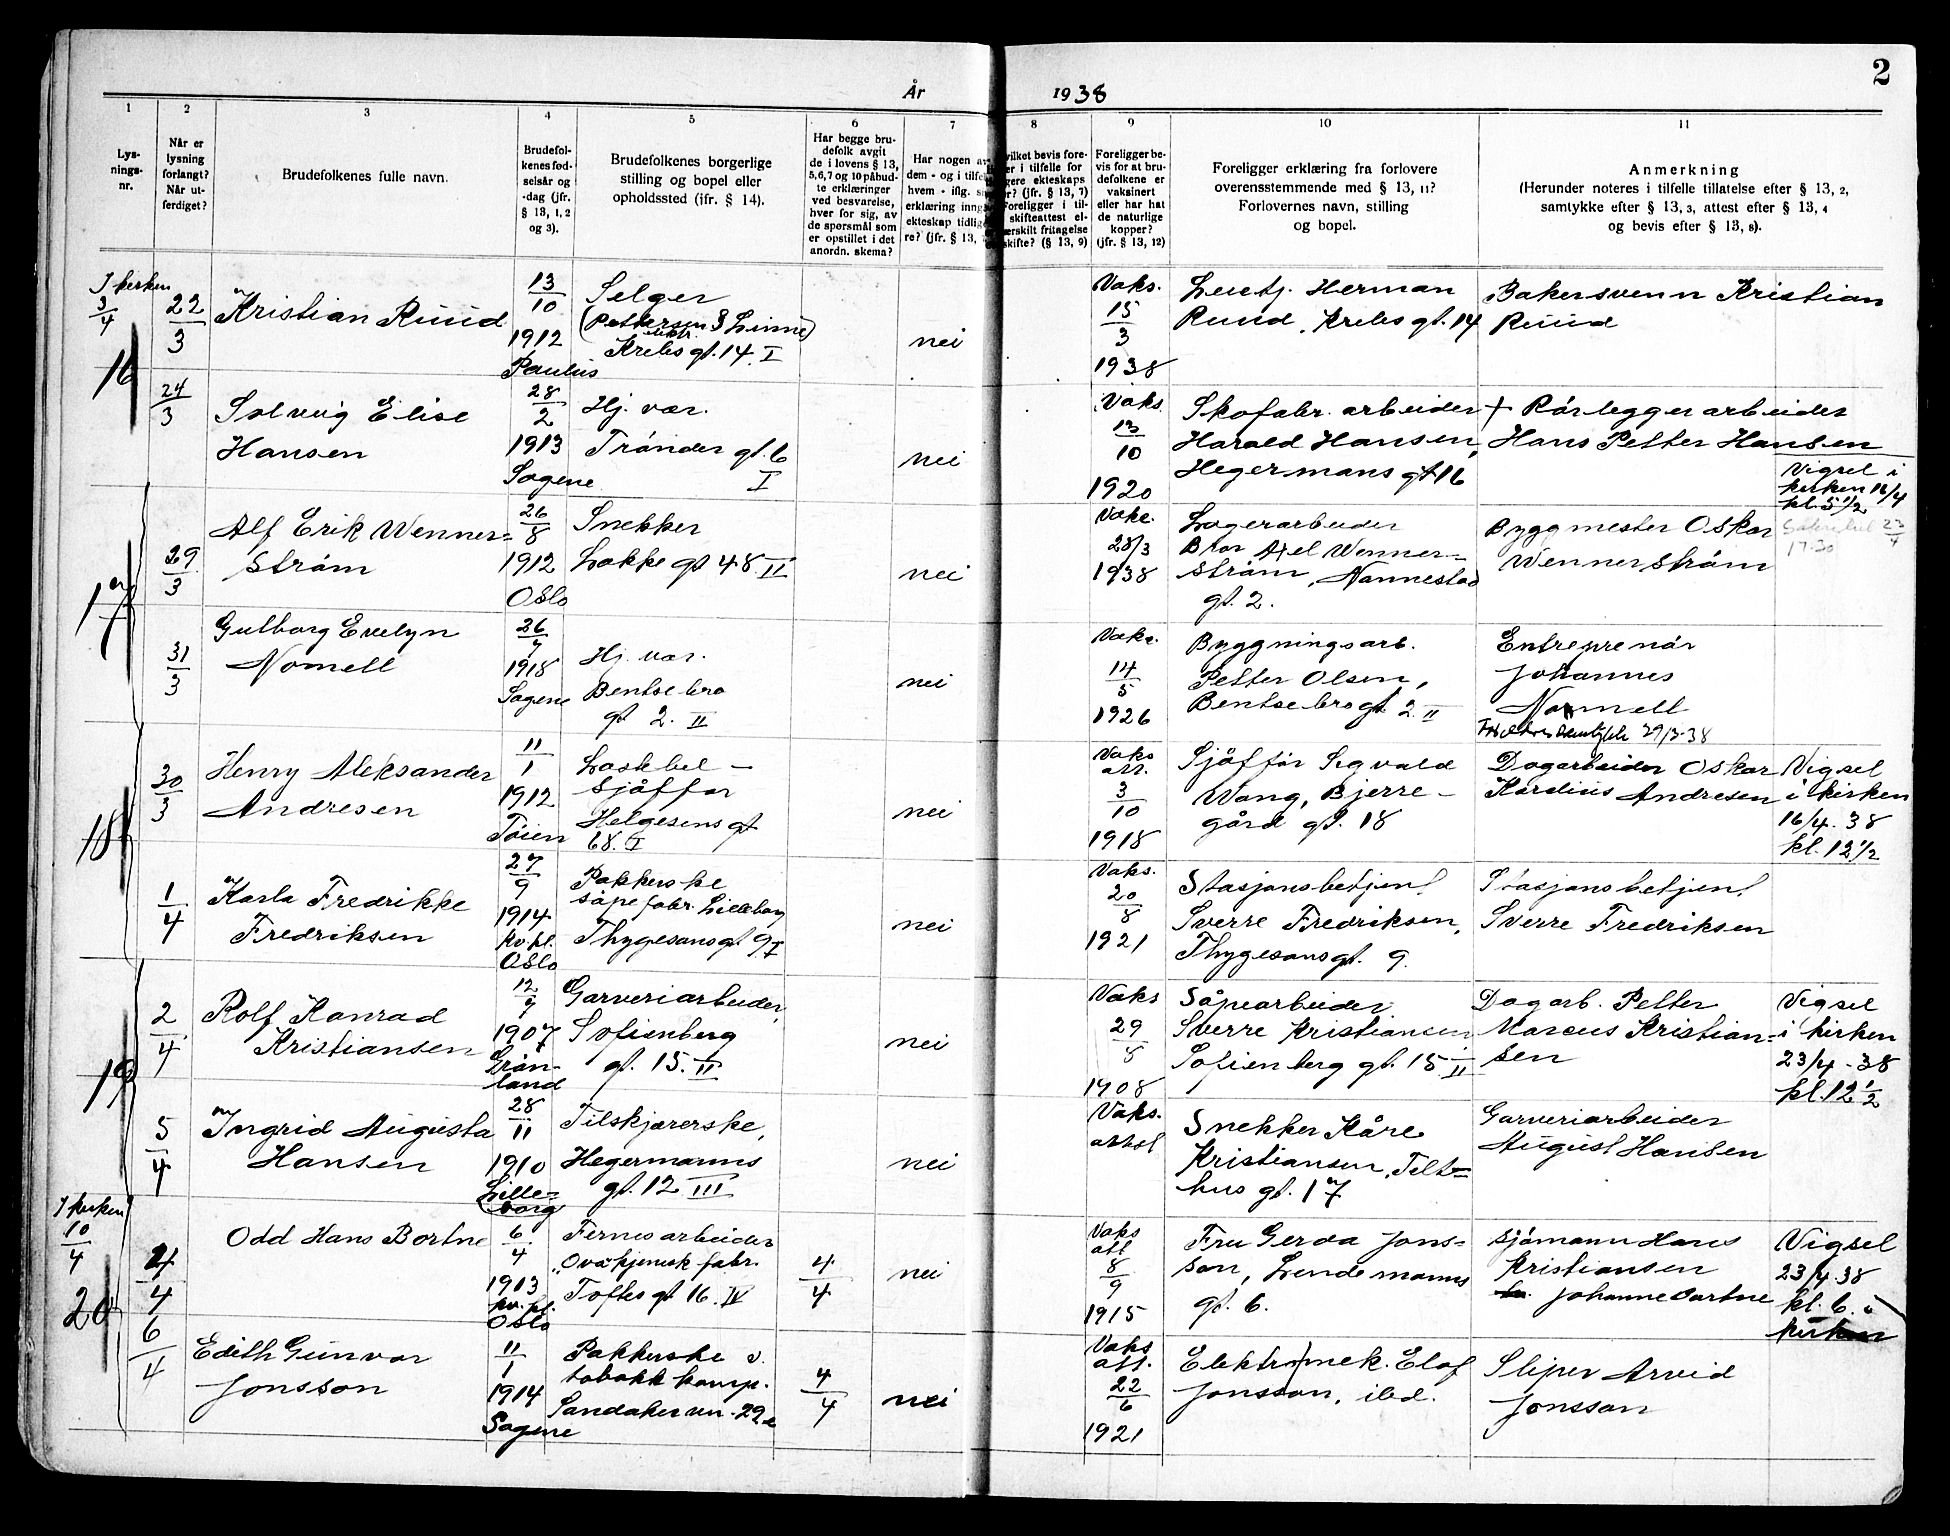 2
År 1938
1 2 3 4 5 6 7 8 9 10 11
Lys-
nings-
nr.
Når er
lysning
forlangt?
Når ut-
ferdiget?
Brudefolkenes fulle navn.
Brudefol-
kenes fød-
selsår og
-dag (jfr.
§ 13, 1, 2
og 3).
Brudefolkenes borgerlige
stilling og bopel eller
opholdssted (jfr. § 14).
Har begge bru-
defolk avgit
de i lovens § 13,
5,6,7 og 10 påbud-
te erklæringer
ved besvarelse,
hver for sig, av
de spørsmål som
er opstillet i det
anordn. skema?
Har nogen av
dem - og i tilfe
hvem - iflg. s
erklæring inng
ekteskap tidlig
re? (jfr. § 13,
vilket bevis fore-
er i tilfelle for
gere ekteskaps
r? (jfr. § 13, 7)
Foreligger i til-
skifteattest el-
erskilt fritagelse
skifte? (§ 13, 9)
Foreligger be-
vis for at bru-
defolkene er
vaksinert
eller har hat
de naturlige
kopper?
(jfr. § 13, 12)
Foreligger erklæring fra forlovere
overensstemmende med § 13, 11?
Forlovernes navn, stilling
og bopel.
Anmerkning
(Herunder noteres i tilfelle tillatelse efter § 13, 2,
samtykke efter § 13, 3, attest efter § 13, 4
og bevis efter § 13, 8).
I kirken
3/4
16
22/3
Kristian Ruud
13/10
1912
Paulus
Selger
(Pettersen & Linne)
Krebs gt. 14. I
nei
Vaks.
15/3
1938
Herman
Ruud, Krebs gt. 14
Bakersvenn Kristian
Ruud
24/3
Solveig Elise
Hansen
28/2
1913
Sagene
Hj. vær.
Trönder gt. 6
I
nei
Vaks.
13/10
1920
Skofabr. arbeider
Harald Hansen,
Hegermans gt 16
+ Rörleggerarbeider
Hans Petter Hansen
Vigsel i
kirken 16/4
kl. 5 1/2
17.30
17
29/3
Alf Erik Wenner=
ström
26/8
1912
Oslo
Snekker
Løkke gt 48 II
nei
Vaks.
28/3
1938
Lagerarbeider
Bror Axel Wenner=
ström, Nannestad
gt. 2.
Byggmester Oskar
Wennerström
31/3
Gulborg Evelyn
Nomell
26/7
1918
Sagene
Hj. vær.
Bentsebro
gt 2. II
nei
Vaks.
14/5
1926
Byggningsarb.
Petter Olsen,
Bentsebrogt. 2 II
Entreprenör
Johannes
Nomell
29/3-38
18
30/3
Henry Aleksander
Andresen
11/1
1912
Töien
Lastebil-
sjåffør
Helgesens gt
68. I
nei
Vaks
att.
3/10
1918
Sjåffør Sigvald
Wang, Bjerre-
gård gt. 18
Dagarbeider Oskar
Kardius Andresen
Vigsel
i kirken
16/4. 38
kl. 12 1/2
1/4
Karla Fredrikke
Fredriksen
27/9
1914
kv.kl.
Oslo
Pakkerske
såpefabr. Lilleborg
Thygesons gt. 9 I
nei
Vaks.
20/8
1921
Stasjonsbetjent
Sverre Fredriksen,
Thygesons gt. 9.
Stasjonsbetjent
Sverre Fredriksen
19
2/4
Rolf Konrad
Kristiansen
12/7
1907
Grön-
land
Garveriarbeider,
Sofienberg
gt. 15. II
nei
Vaks
29/8
1908
Såpearbeider
Sverre Kristiansen
Sofienberg gt. 15 II
Dagarb. Petter
Marcus Kristian=
sen
Vigsel
i kirken
23/4-38
kl. 12 1/2
5/4
Ingrid Augusta
Hansen
28/11
1910
Lille=
borg
Tilskjærerske,
Hegermanns
gt. 12 III
nei
Vaks.
attst
Snekker Kåre
Kristiansen, Telt=
hus gt. 17
Garveriarbeider
August Hansen
I kirken
10/4
20
4/4
Odd Hans Bortne
6/4
1913
kv.kl.
Oslo
Fernesarbeider
"Ova" kjemisk fabr.
Toftes gt 16. IV
4/4
nei
Vaks
att
8/9
1915
Fru Gerda Jons=
son, Lendemanns
gt. 6.
Sjömann Hans
Kristiansen
Johanne Bortne
Vigsel
23/4 38
kl. 6. i
kirken
6/4
Edith Gunvor
Jonsson
11/1
1914
Sagene
Pakkerske v.
tobakk komp.
Sandakervn. 22
4/4
nei
Vaks
att.
22/6
1921
Elektr. mek. Elof
Jonsson, ibd.
Sliper Arvid
Jonsson